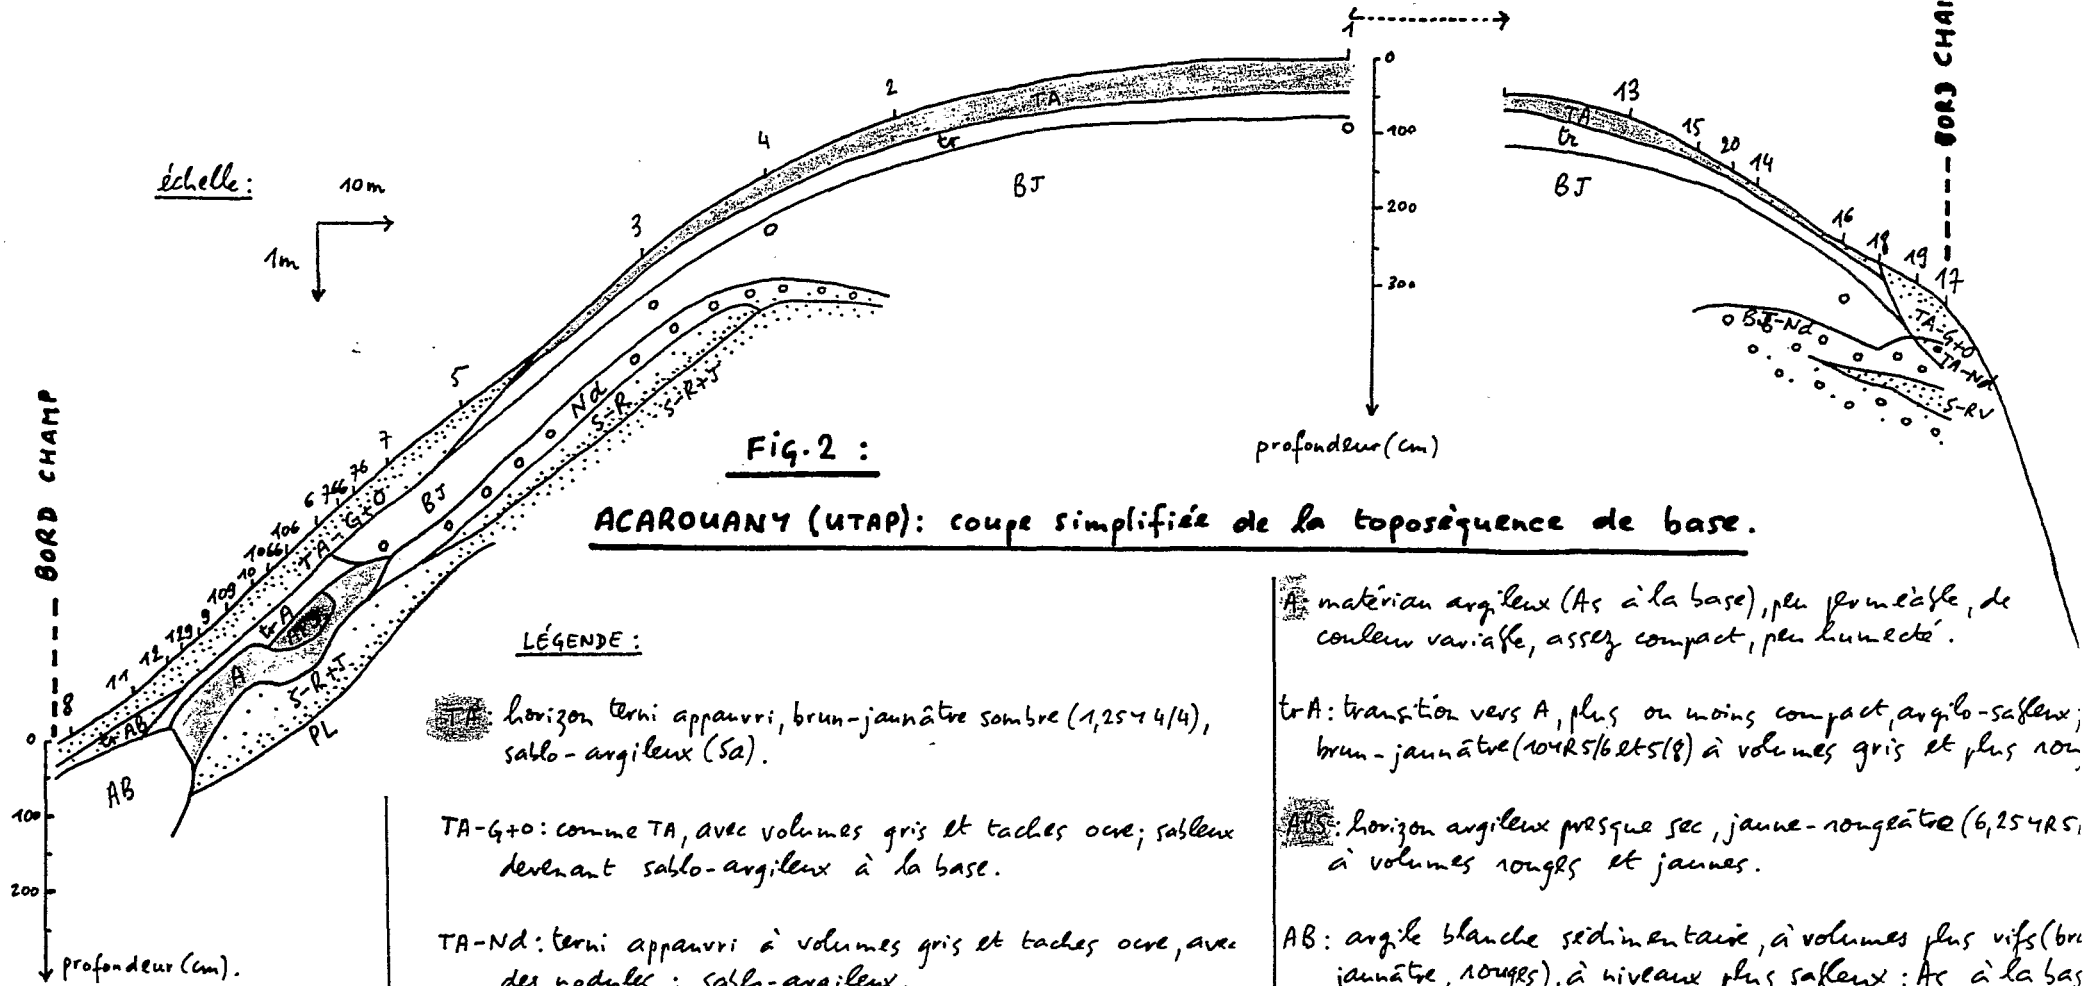 BORD CHA
1
0
100
200
300
profondeur (cm)
échelle:
10m
1m
2
4
3
5
7
76
766
6
106
1066
10
109
9
129
12
11
8
TA
tr
BJ
Nd
S-R
S-R+J
TA-G+O
BJ
trA
APS
A
S-R+J
PL
trAB
AB
BORD CHAMP
0
100
200
profondeur (cm).
13
15
20
14
16
18
19
17
TA
tr
BJ
BJ-Nd
TA-G+O
TA-Nd
S-RV
Fig.2 :
ACAROUANY (UTAP): coupe simplifiée de la toposéquence de base.
LÉGENDE:
TA: horizon terni appauvri, brun-jaunâtre sombre (1,25Y 4/4),
sablo-argileux (Sa).
TA-G+O: comme TA, avec volumes gris et taches ocre; sableux
devenant sablo-argileux à la base.
TA-Nd: terni appauvri à volumes gris et taches ocre, avec
des nodules; sablo-argileux.
A: matériau argileux (As à la base), peu perméable, de
couleur variable, assez compact, peu humecté.
trA: transition vers A, plus ou moins compact, argilo-sableux;
brun-jaunâtre (10YR5/6 et 5/8) à volumes gris et plus rou
APS: horizon argileux presque sec, jaune-rougeâtre (6,25YR5,
à volumes rouges et jaunes.
AB: argile blanche sédimentaire, à volumes plus vifs (bru
jaunâtre, rouges), à niveaux plus sableux; As à la bas